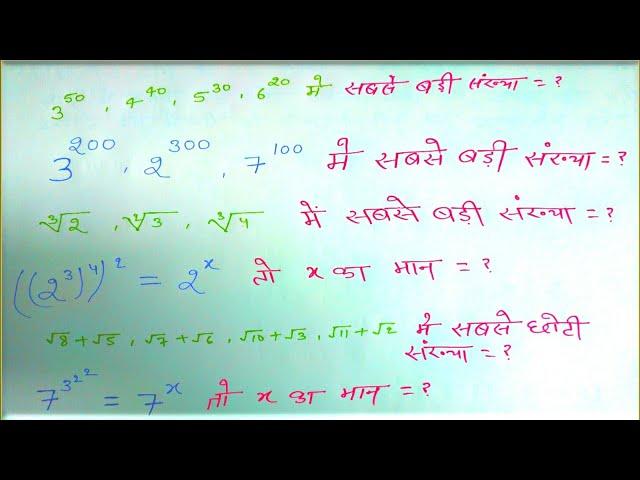 3^50, 4^40, 5^30, 6^20 में सबसे बड़ी संख्या = ?
3^200, 2^300, 7^100 में सबसे बड़ी संख्या = ?
∛2, ∜3, ∛4 में सबसे बड़ी संख्या = ?
((2^3)^4)^2 = 2^x तो x का मान = ?
√8+√5, √7+√6, √10+√3, √11+√2 में सबसे छोटी
संख्या = ?
7^3^2^2 = 7^x तो x का मान = ?